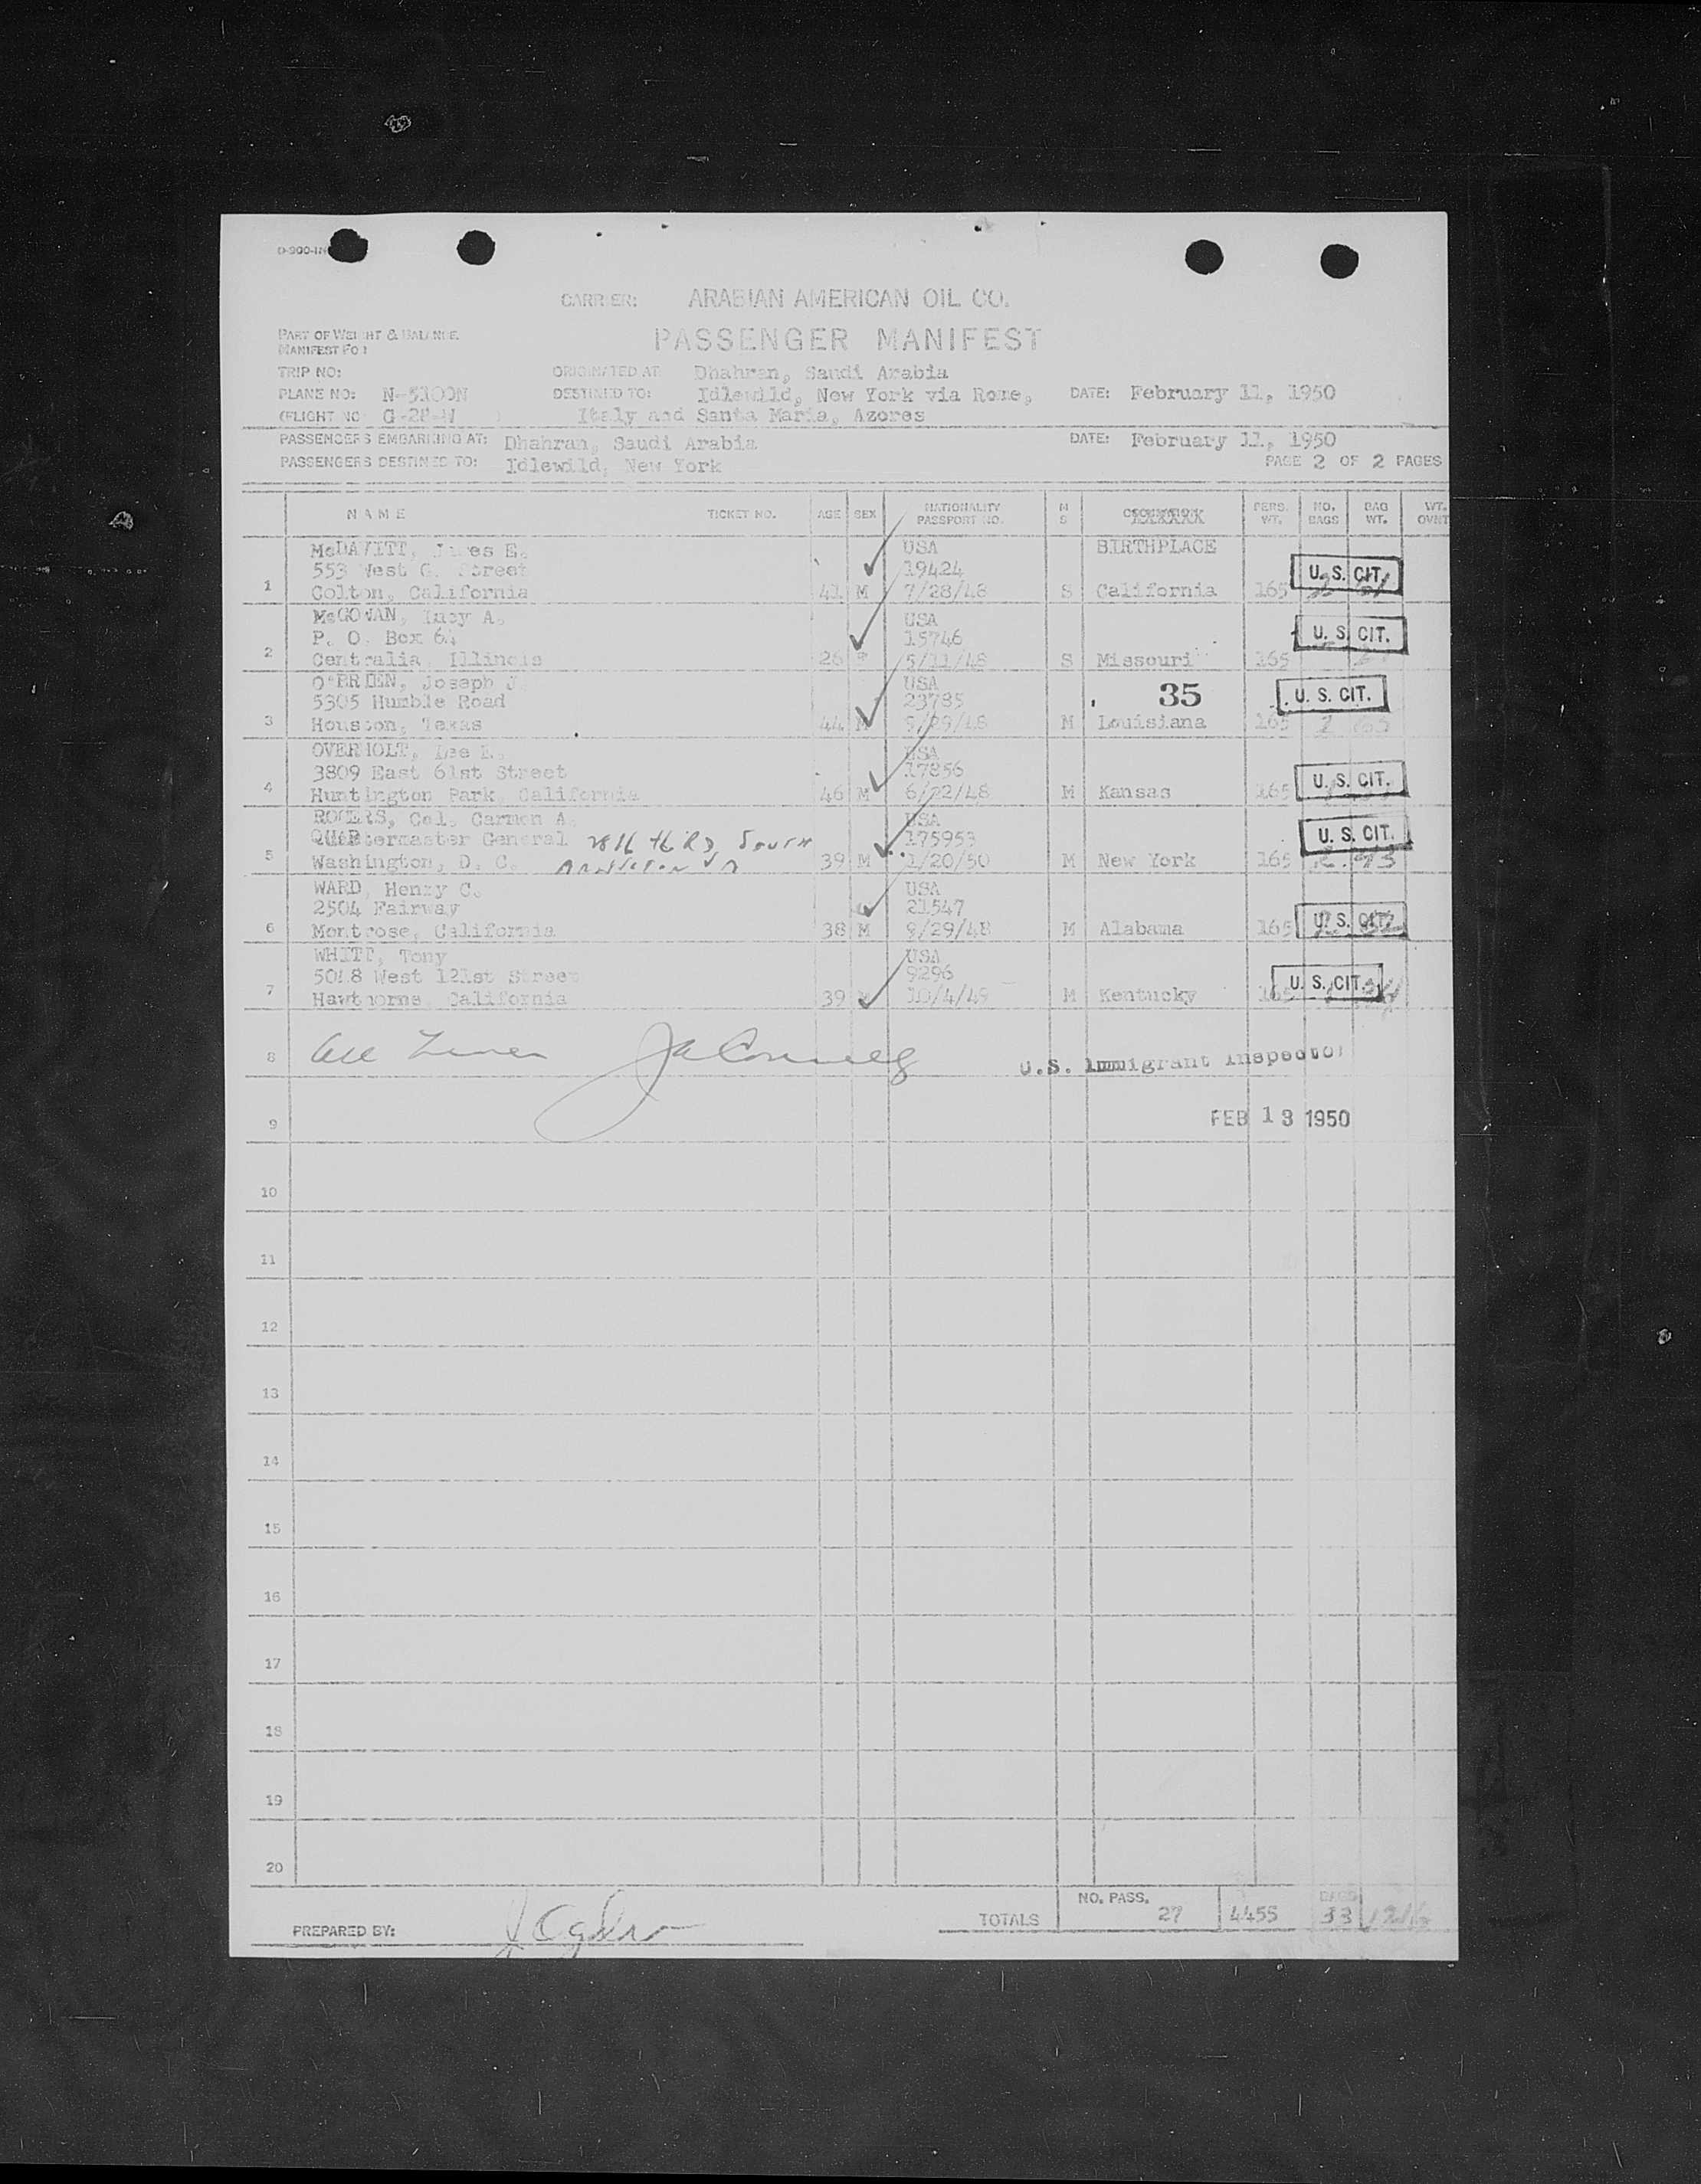 D-900-IN
CARRIER: ARABIAN AMERICAN OIL CO.
PART OF WEIGHT & BALANCE
MANIFEST FOR
PASSENGER MANIFEST
TRIP NO: ORIGINATED AT Dhahran, Saudi Arabia
PLANE NO: N-5100N DESTINED TO: Idlewild, New York via Rome, DATE: February 11, 1950
(FLIGHT NO G-28-N ) Italy and Santa Maria, Azores
PASSENGERS EMBARKING AT: Dhahran, Saudi Arabia DATE: February 11, 1950
PASSENGERS DESTINED TO: Idlewild, New York PAGE 2 OF 2 PAGES
NAME TICKET NO. AGE SEX NATIONALITY PASSPORT NO. M S PERS. WT. NO. BAGS BAG WT. WT. OVNT
McDAVITT, James E. USA BIRTHPLACE
553 West G. Street 19424 U. S. CIT.
1 Colton, California 41 M 7/28/48 S California 165
McGOWAN, Lucy A. USA
P. O. Box 64 15746 U. S. CIT.
2 Centralia, Illinois 26 5/11/48 S Missouri 165
O'BRIEN, Joseph J USA
5305 Humble Road 23785 35 U. S. CIT.
3 Houston, Texas 44 M 9/29/48 M Louisiana 165
OVERHOLT, Lee USA
3809 East 61st Street 17856 U. S. CIT.
4 Huntington Park, California 46 M 6/22/48 M Kansas 165
ROGERS, Col. Carmon A. USA
QUARtermaster General 2816 thiRD SOUTH 175953 U. S. CIT.
5 Washington, D. C. 39 M 1/20/50 M New York 165
WARD, Henry C. USA
2504 Fairway 21547
6 Montrose, California 38 M 9/29/48 M Alabama 165 U. S. CIT.
WHITE, Tony USA
5048 West 121st Street 9296 U. S. CIT.
7 Hawthorne, California 39 10/4/49 M Kentucky 165
8 U.S. Immigrant Inspector
9 FEB 13 1950
10
11
12
13
14
15
16
17
18
19
20
PREPARED BY: TOTALS NO. PASS. 27 4455 BAGS 33